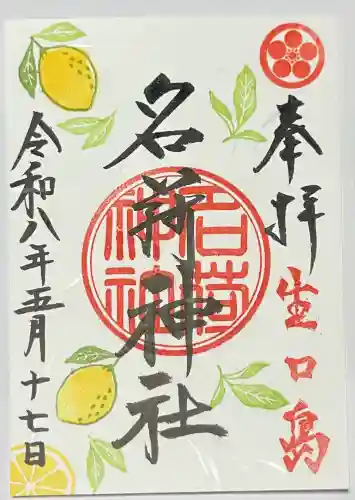 奉拝
生口島
名荷神社
名荷神社
令和八年五月十七日